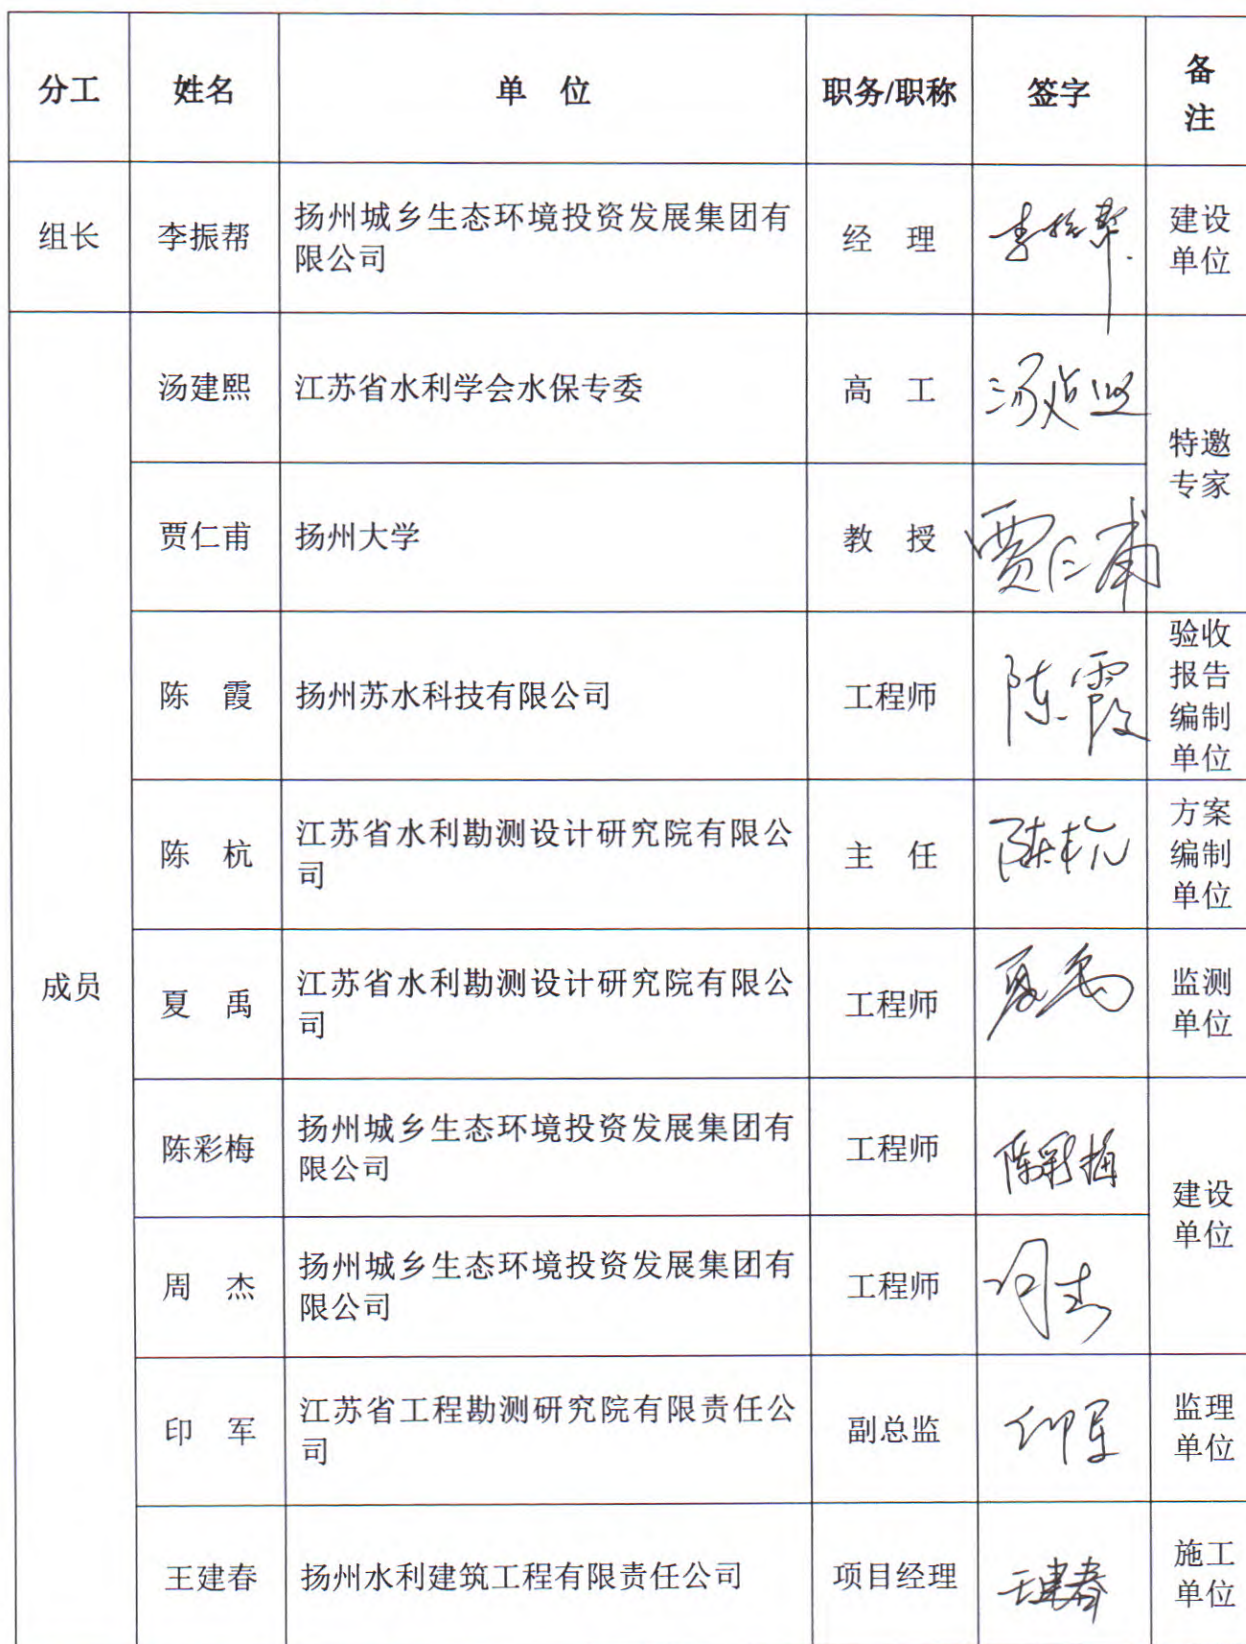 分工 姓名 单 位 职务/职称 签字 备注
组长 李振帮 扬州城乡生态环境投资发展集团有限公司 经 理 李振帮 建设单位
成员
汤建熙 江苏省水利学会水保专委 高 工 汤建熙 特邀专家
贾仁甫 扬州大学 教 授 贾仁甫
陈 霞 扬州苏水科技有限公司 工程师 陈霞 验收报告编制单位
陈 杭 江苏省水利勘测设计研究院有限公司 主 任 陈杭 方案编制单位
夏 禹 江苏省水利勘测设计研究院有限公司 工程师 夏禹 监测单位
陈彩梅 扬州城乡生态环境投资发展集团有限公司 工程师 陈彩梅 建设单位
周 杰 扬州城乡生态环境投资发展集团有限公司 工程师 周杰
印 军 江苏省工程勘测研究院有限责任公司 副总监 印军 监理单位
王建春 扬州水利建筑工程有限责任公司 项目经理 王建春 施工单位